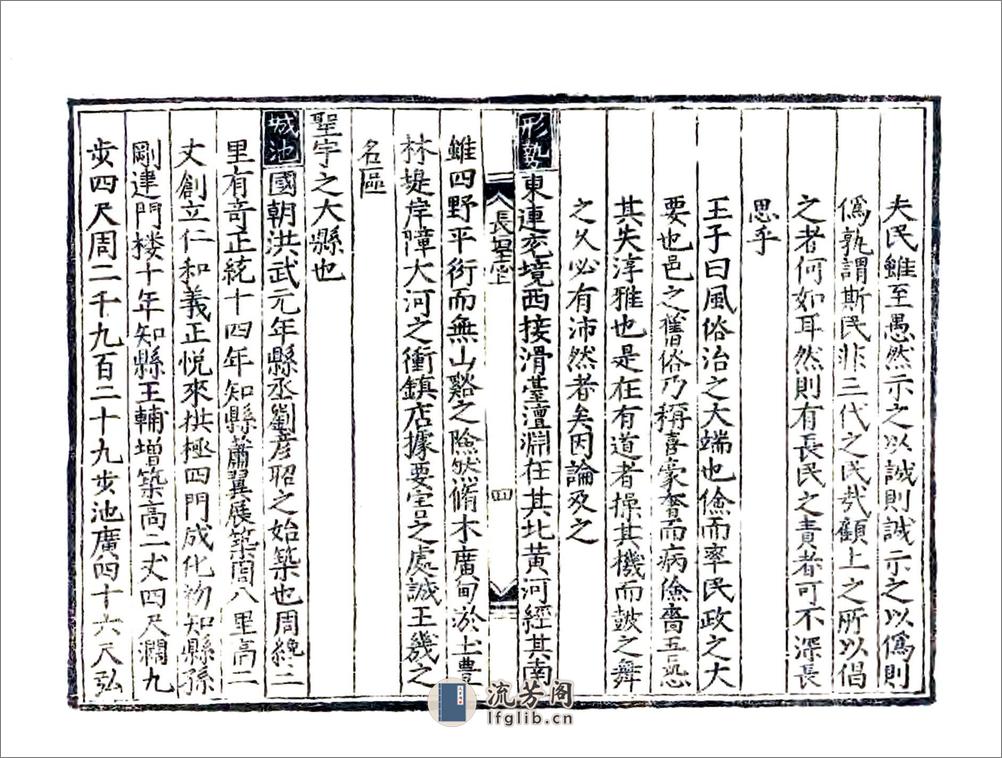 夫民雖至愚然示之以誠則誠示之以僞則
僞孰謂斯民非三代之民哉顧上之所以倡
之者何如耳然則有長民之責者可不深長
思乎
王子曰風俗治之大端也儉而率民政之大
要也邑之舊俗乃稱喜豪奢而病儉嗇吾恐
其失淳雅也是在有道者操其機而鼓之舞
之久必有沛然者矣因論及之
形勢
東連兖境西接滑臺澶淵在其北黄河經其南
長垣上
四
雖四野平衍而無山谿之險然脩木廣甸於土豊
林堤岸障大河之衝鎮店據要害之處誠王畿之
名區
聖宇之大縣也
城池
國朝洪武元年縣丞劉彦昭之始築也周纔二
里有奇正統十四年知縣蕭翼展築周八里高二
丈創立仁和義正悦來拱極四門成化初知縣孫
剛建門楼十年知縣王輔增築高二丈四尺濶九
步四尺周二千九百二十九步池廣四十六尺弘
流芳阁
lfglib.cn